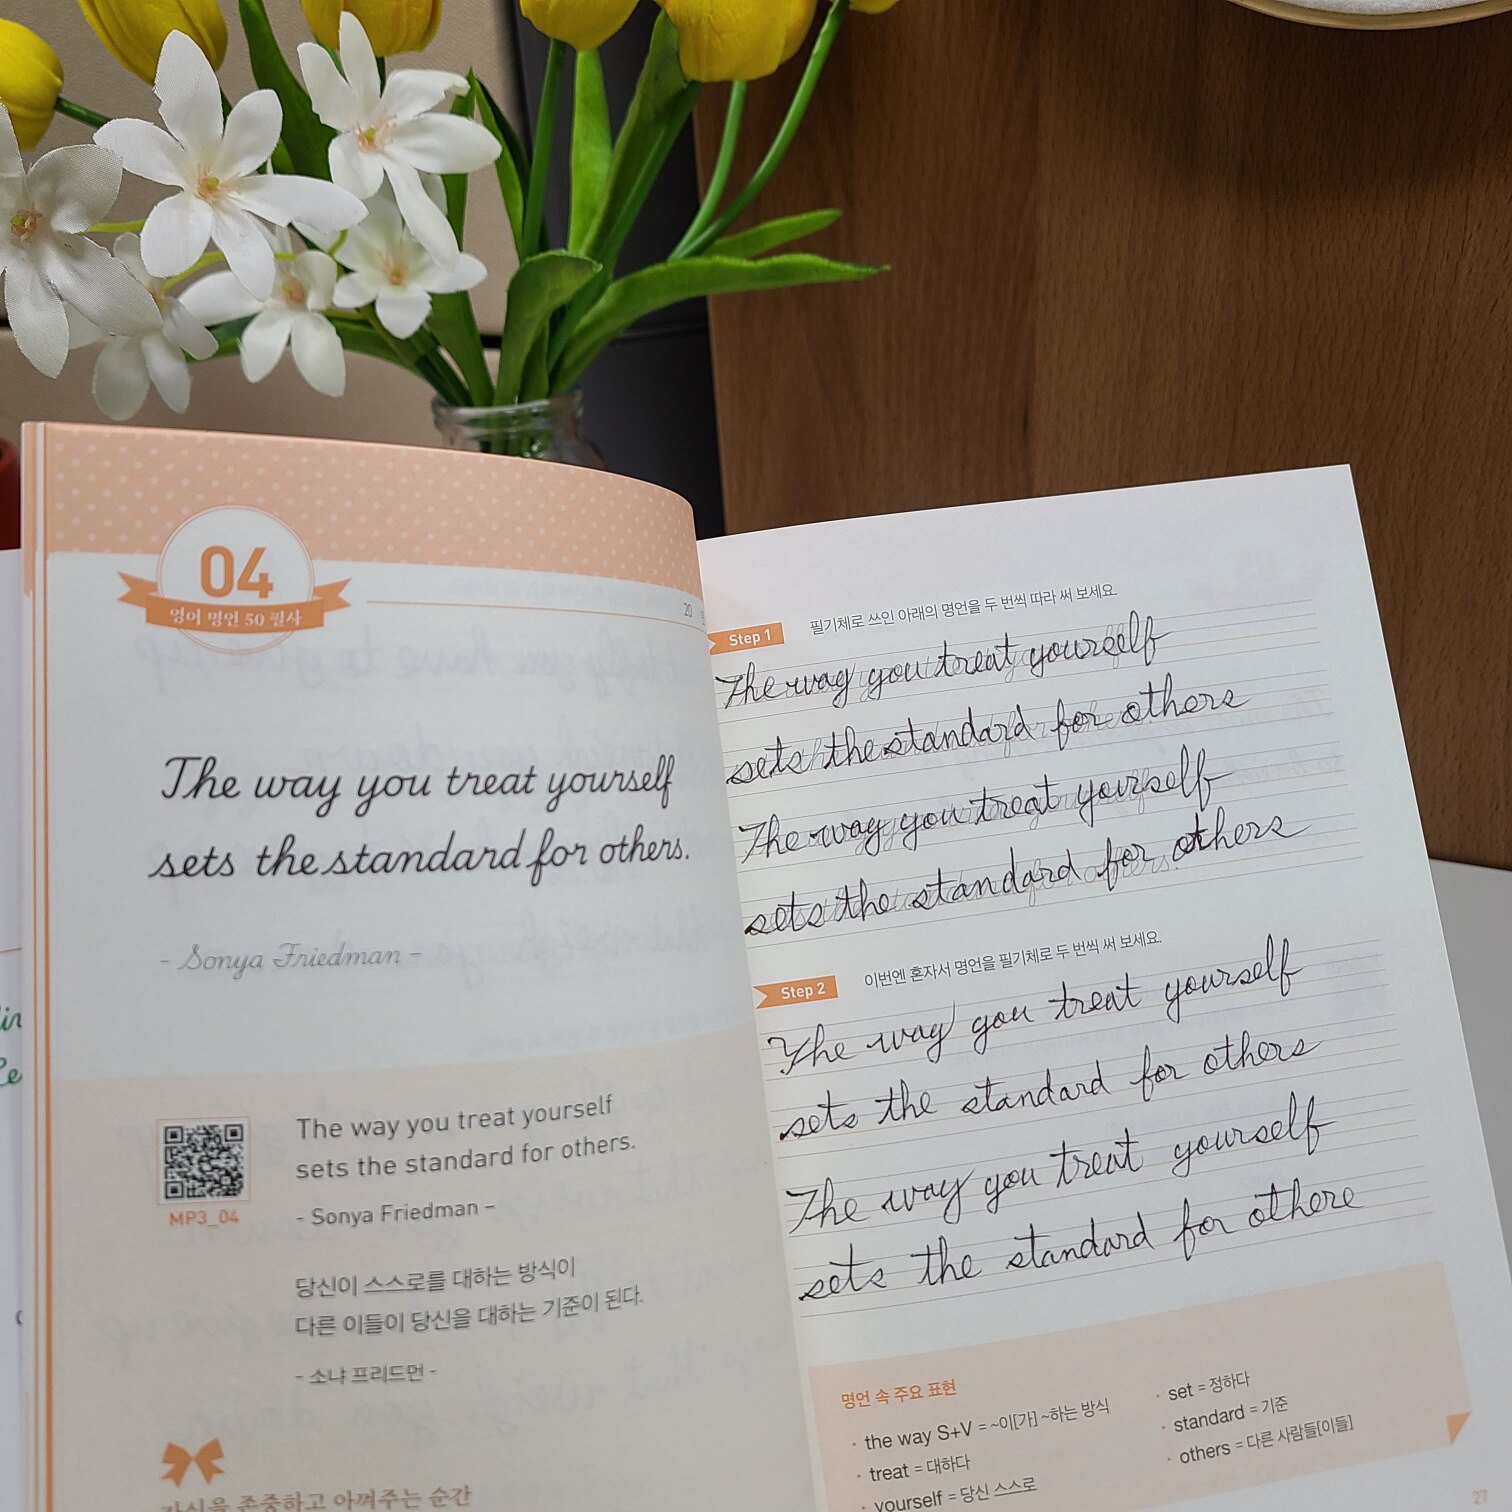 04
영어 명언 50 필사
20
The way you treat yourself
sets the standard for others.
- Sonya Friedman -
MP3_04
The way you treat yourself
sets the standard for others.
- Sonya Friedman -
당신이 스스로를 대하는 방식이
다른 이들이 당신을 대하는 기준이 된다.
- 소냐 프리드먼 -
자신을 존중하고 아껴주는 순간
Step 1
필기체로 쓰인 아래의 명언을 두 번씩 따라 써 보세요.
The way you treat yourself
sets the standard for others
The way you treat yourself
sets the standard for others
Step 2
이번엔 혼자서 명언을 필기체로 두 번씩 써 보세요.
The way you treat yourself
sets the standard for others
The way you treat yourself
sets the standard for othere
명언 속 주요 표현
· the way S+V = ~이[가] ~하는 방식
· treat = 대하다
· yourself = 당신 스스로
· set = 정하다
· standard = 기준
· others = 다른 사람들[이들]
27